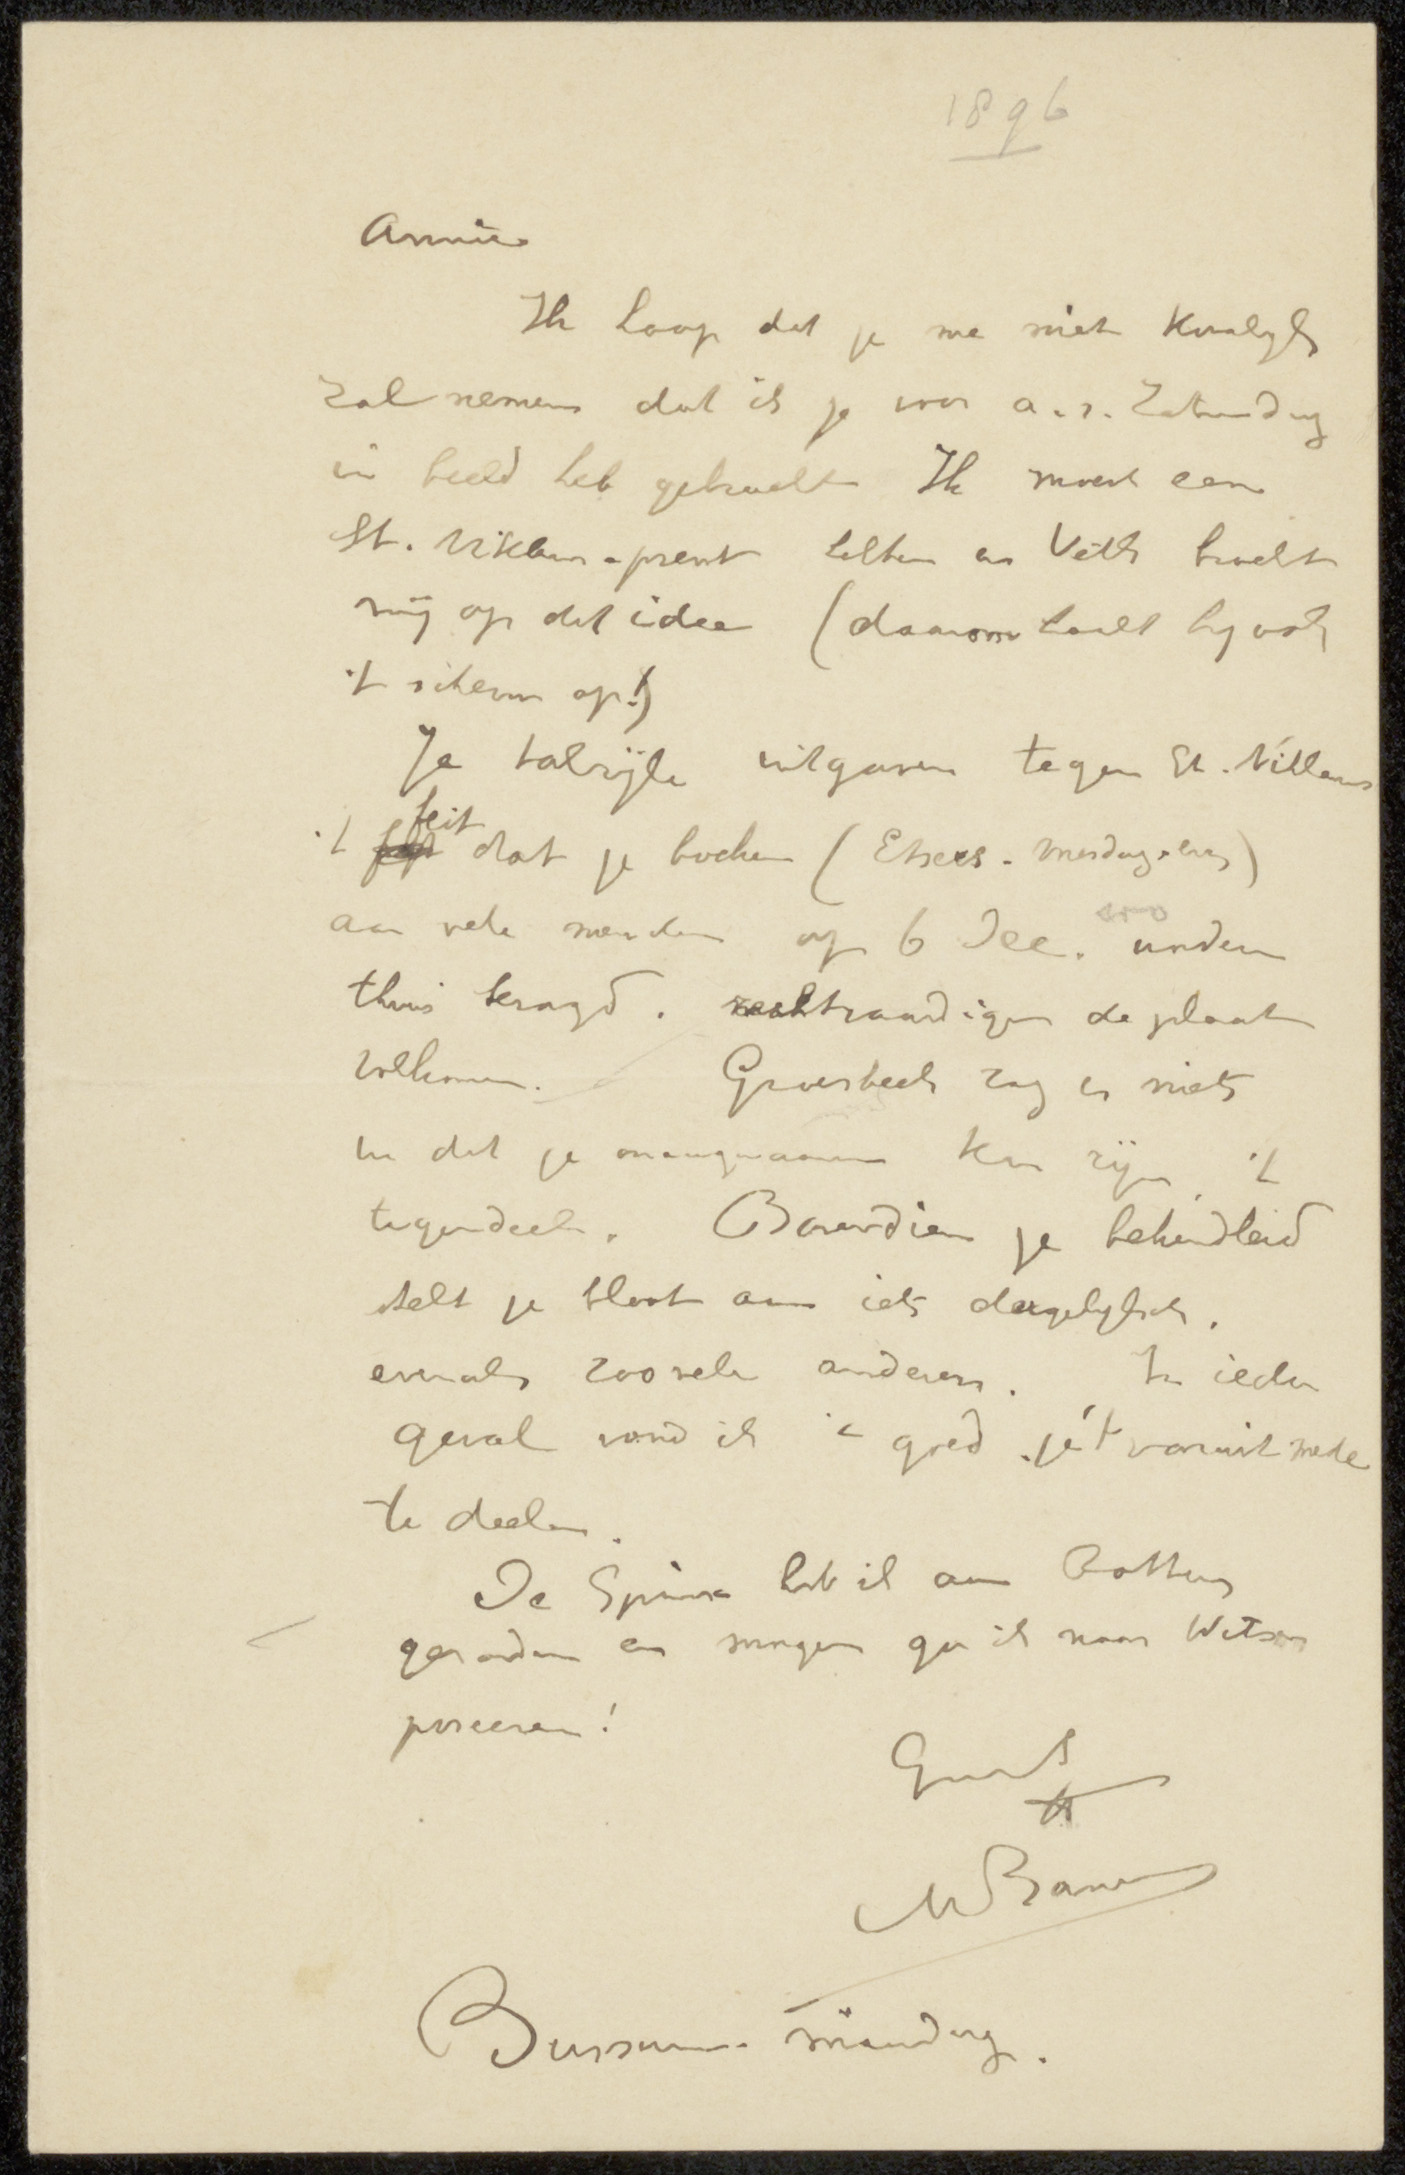 1896
Amice
Ik hoop dat je me niet kwalyk
zal nemen dat ik je voor a.s. Zaterdag
in beeld heb gebracht Ik moest een
St. Niklaas-prent hebben en Veth bracht
mij op dat idee (daarom haalt hy ook
't scherm op!)
Je talrijke uitgaven tegen St. Niklaas
't feit dat je boeken (Etsers - Mesdag - enz)
aan vele monden op 6 Dec. worden
thuis bezorgd. rechtvaardigen de plaat
volkomen. Groesbeek zag er niets
in dat je onaangenaam kon zijn, 't
tegendeel. Bovendien je bekendheid
stelt je bloot aan iets dergelyks.
evenals zoovele anderen. In ieder
geval vond ik 't goed je 't vooruit mede
te deelen.
De Spinoza heb ik aan
gezonden en morgen ga ik naar Witsen
poseeren!
Groet
MBauer
Bussum. maandag.